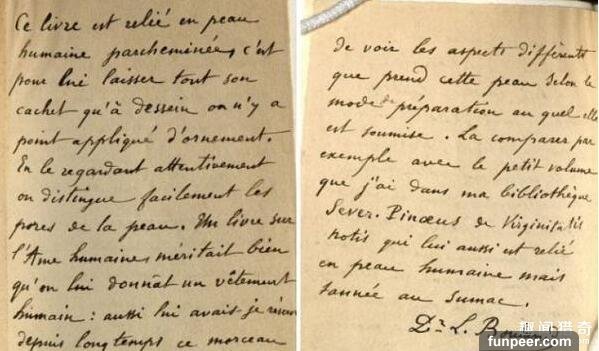 Ce livre est relié en peau
humaine parcheminée, c'est
pour lui laisser tout son
cachet qu'à dessein on n'y a
point appliqué d'ornement.
En le regardant attentivement
on distingue facilement les
pores de la peau. Un livre sur
l'Ame humaine méritait bien
qu'on lui donnât un vêtement
humain : aussi lui avais-je réservé
depuis longtemps ce morceau
de voir les aspects différents
que prend cette peau selon le
mode de préparation au quel elle
est soumise. La comparer par
exemple avec le petit volume
que j'ai dans ma bibliothèque
Sever. Pinaeus de Virginitatis
notis qui lui aussi est relié
en peau humaine mais
tannée au Sumac.
Dr. L.
趣闻猎奇
funpeer.com